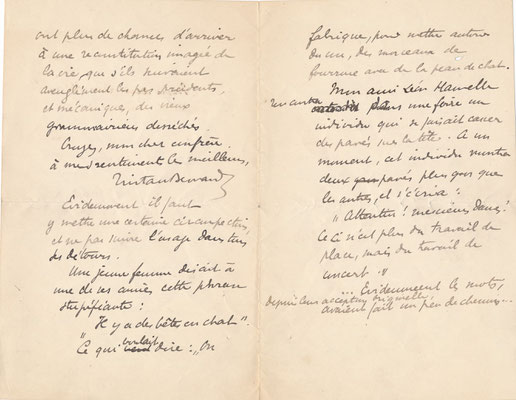 ont plus de chances d'arriver
à une reconstitution imagée de
la vie, que s'ils suivaient
aveuglément les pas précédents
et mécaniques, des vieux
grammairiens desséchés.
Croyez, mon cher confrère
à mes sentiments les meilleurs,
Tristan Bernard
Évidemment il faut
y mettre une certaine circonspection,
et ne pas suivre l'usage dans tous
ses détours.
Une jeune femme disait à
une de ses amies, cette phrase
stupéfiante :
"Il y a des bêtes en chat".
Ce qui voulait dire : "On
fabrique, pour mettre autour
du cou, des morceaux de
fourrure avec de la peau de chat.
Mon ami Léon
rencontra dans une foire un
individu qui se faisait casser
des pavés sur la tête. A un
moment, cet individu montra
deux pavés plus gros que
les autres, et s'écria :
"Attention ! messieurs Dames !
Ceci n'est plus du travail de
place, mais du travail de
concert."
... Évidemment les mots,
depuis leur acception originelle,
avaient fait un peu de chemin...